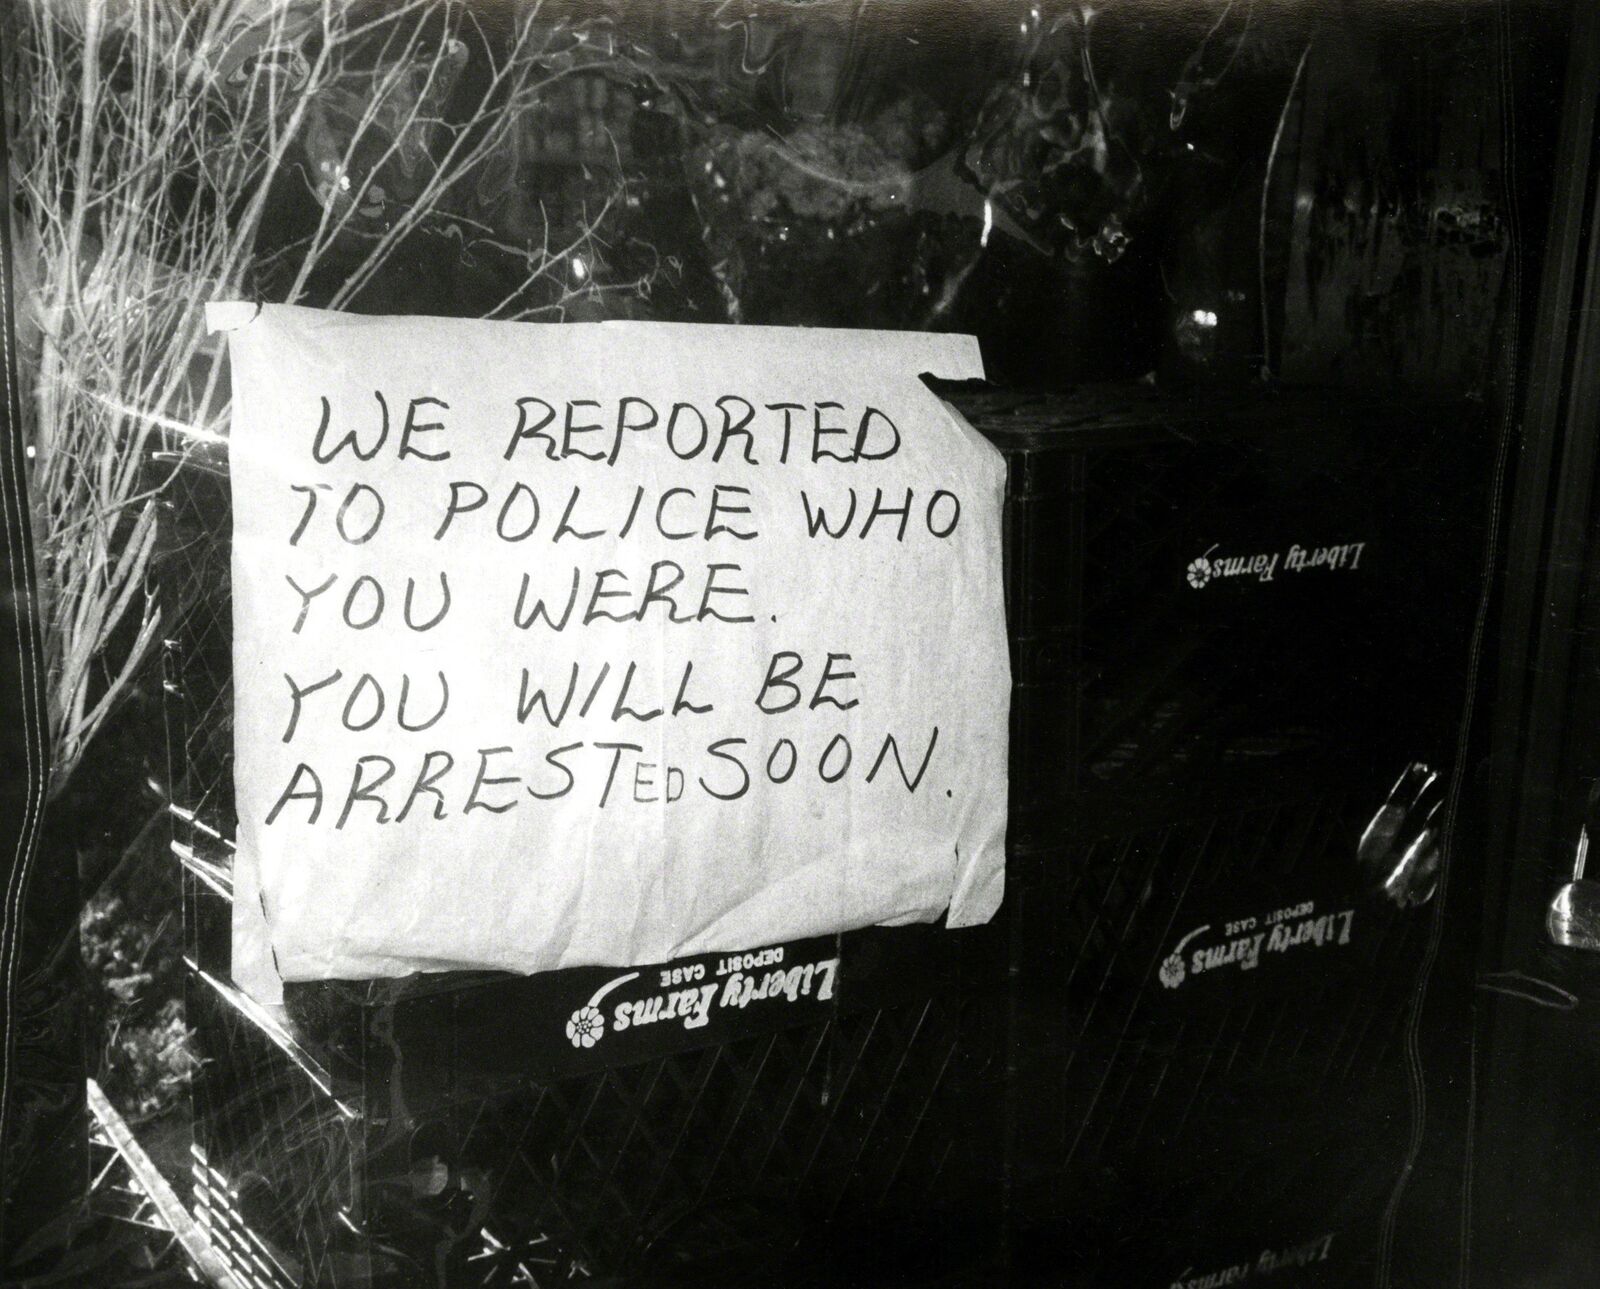 WE REPORTED
TO POLICE WHO
YOU WERE.
YOU WILL BE
ARRESTED SOON.
Liberty Farms
Liberty Farms
DEPOSIT CASE
Liberty Farms
DEPOSIT CASE
Liberty Farms